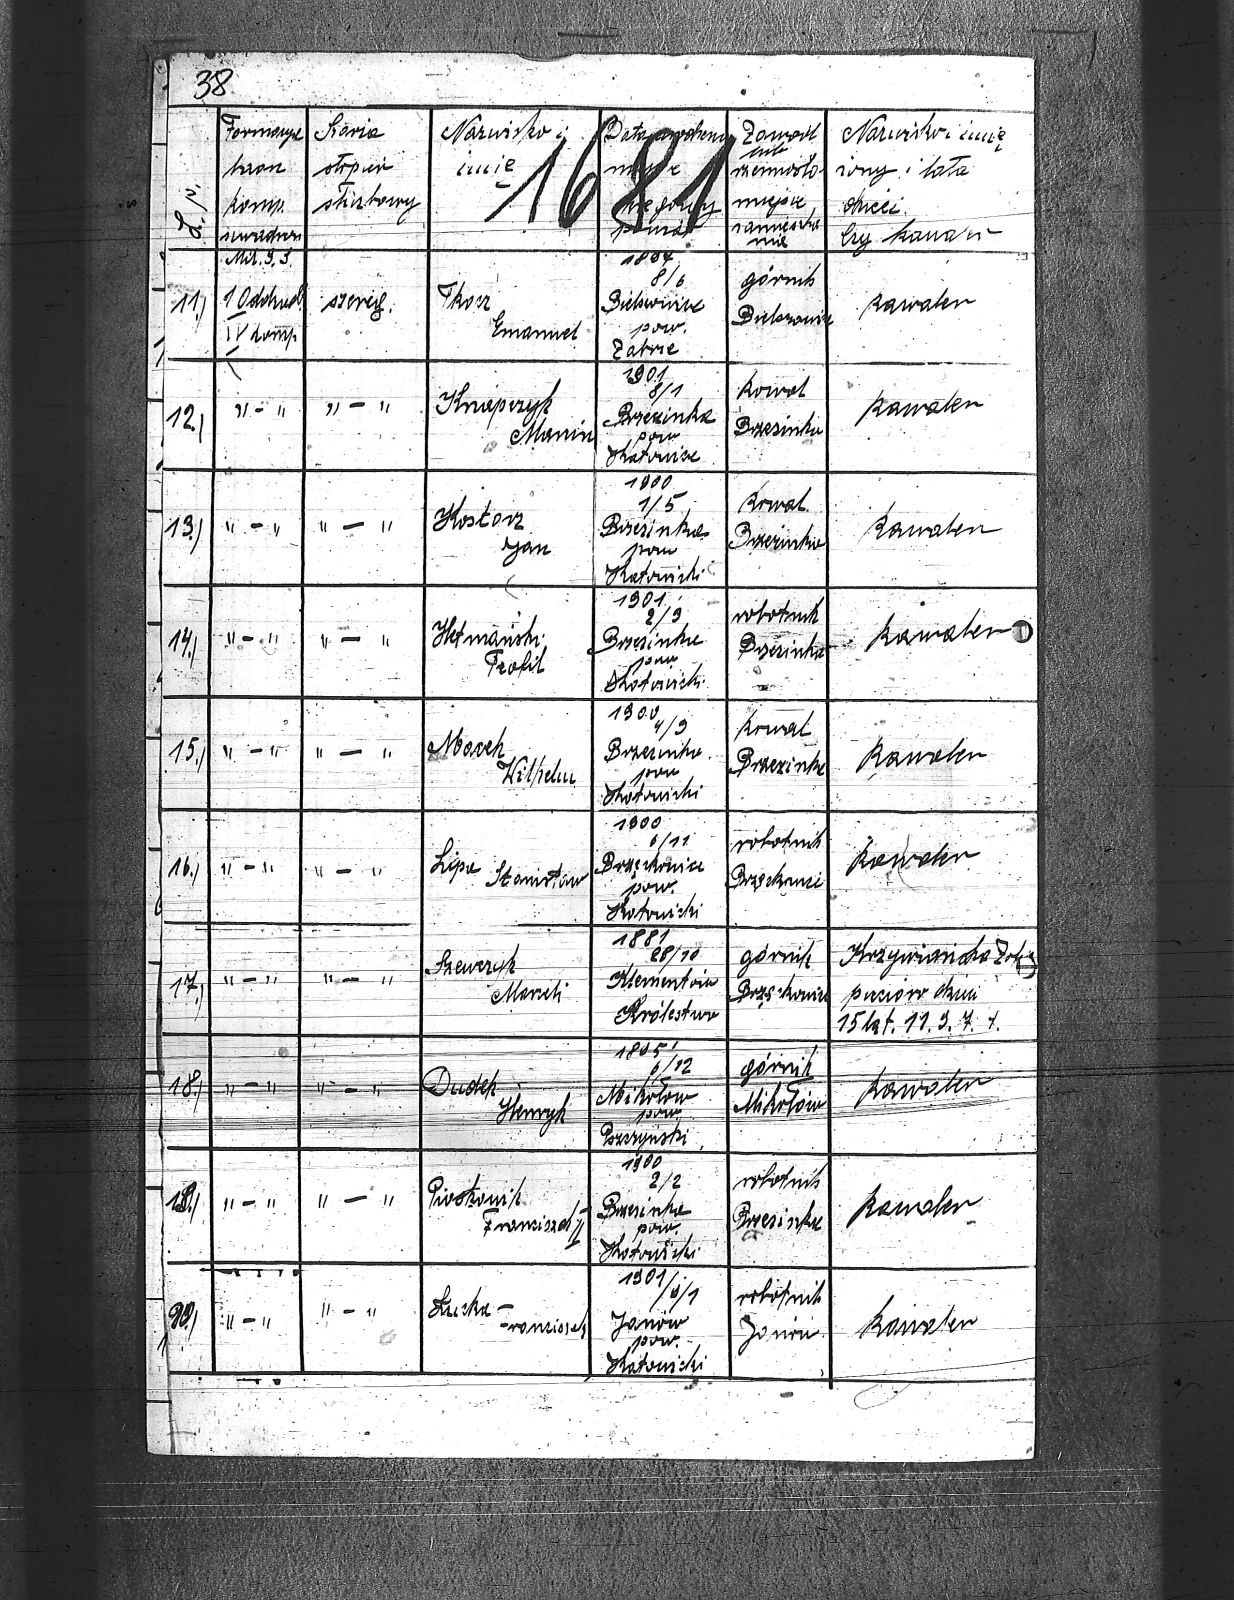 38
L. p.
Formacja
komp.
Szarża
stopień
służbowy
Nazwisko i
imię
1681
Data urodzenia
miejsce
powiat
Zawód
rzemiosło
miejsce
zamieszka
nia
Nazwisko i imię
żony i lata
dzieci
Czy kawaler
11.)
1 Oddział
IV komp.
szereg.
Tkocz
Emanuel
8/6
Bielszowice
pow.
Zabrze
górnik
Bielszowice
kawaler
12.)
" - "
" - "
Knapczyk
Marcin
1901
8/1
Brzezinka
pow
Katowice
kowal
Brzezinka
kawaler
13.)
" - "
" - "
Kostorz
Jan
1900
1/5
Brzezinka
pow
Katowicki
kowal
Brzezinka
kawaler
14.)
" - "
" - "
Hetmański
Teofil
1901
2/3
Brzezinka
pow
Katowicki
robotnik
Brzezinka
kawaler
15.)
" - "
" - "
Macek
Wilhelm
1900
4/9
Brzezinka
pow
Katowicki
kowal
Brzezinka
kawaler
16.)
" - "
" - "
Lipa
Stanisław
1900
6/11
Brzęckowice
pow.
Katowicki
robotnik
kawaler
17.)
" - "
" - "
Szewczyk
Marceli
1881
28/10
Klementów
Królestwo
górnik
Brzęckowice
pięcioro dzieci
15 lat. 11. 9. 7. 1.
18.)
" - "
" - "
Dudek
Henryk
6/12
Mikołów
pow
Pszczyński
górnik
Mikołów
kawaler
19.)
" - "
" - "
Franciszek II
1900
2/2
Brzezinka
pow.
Katowicki
robotnik
Brzezinka
kawaler
20.)
" - "
" - "
Franciszek
1901
6/1
Janów
pow.
Katowicki
robotnik
Janów
kawaler